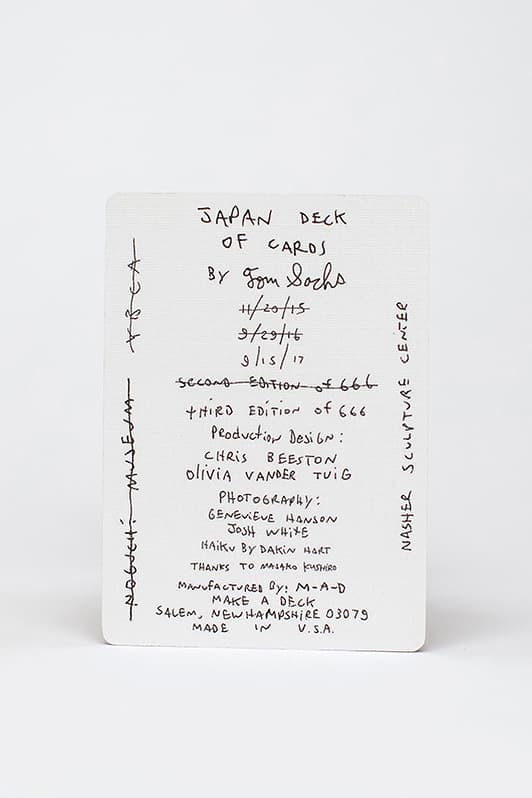 JAPAN DECK
OF CARDS
BY Tom Sachs
11/20/15
9/29/16
9/15/17
SECOND EDITION of 666
tHiRD EDITION of 666
PRoDuctioN DEsigN:
CHRIS BEESTON
OliViA VANDER TUiG
PHOTOGRAPHY:
GENEViEVE HANSON
JOSH WHITE
HAiKU BY DAKIN HART
THANKS TO MASAKO KUSHIRO
MANUFACTURED By: M-A-D
MAKE A DECK
SALEM, NEW HAMPSHIRE 03079
MADE IN U.S.A.
NOGUCHi MUSEUM YBCA
NASHER SCULPTURE CENTER